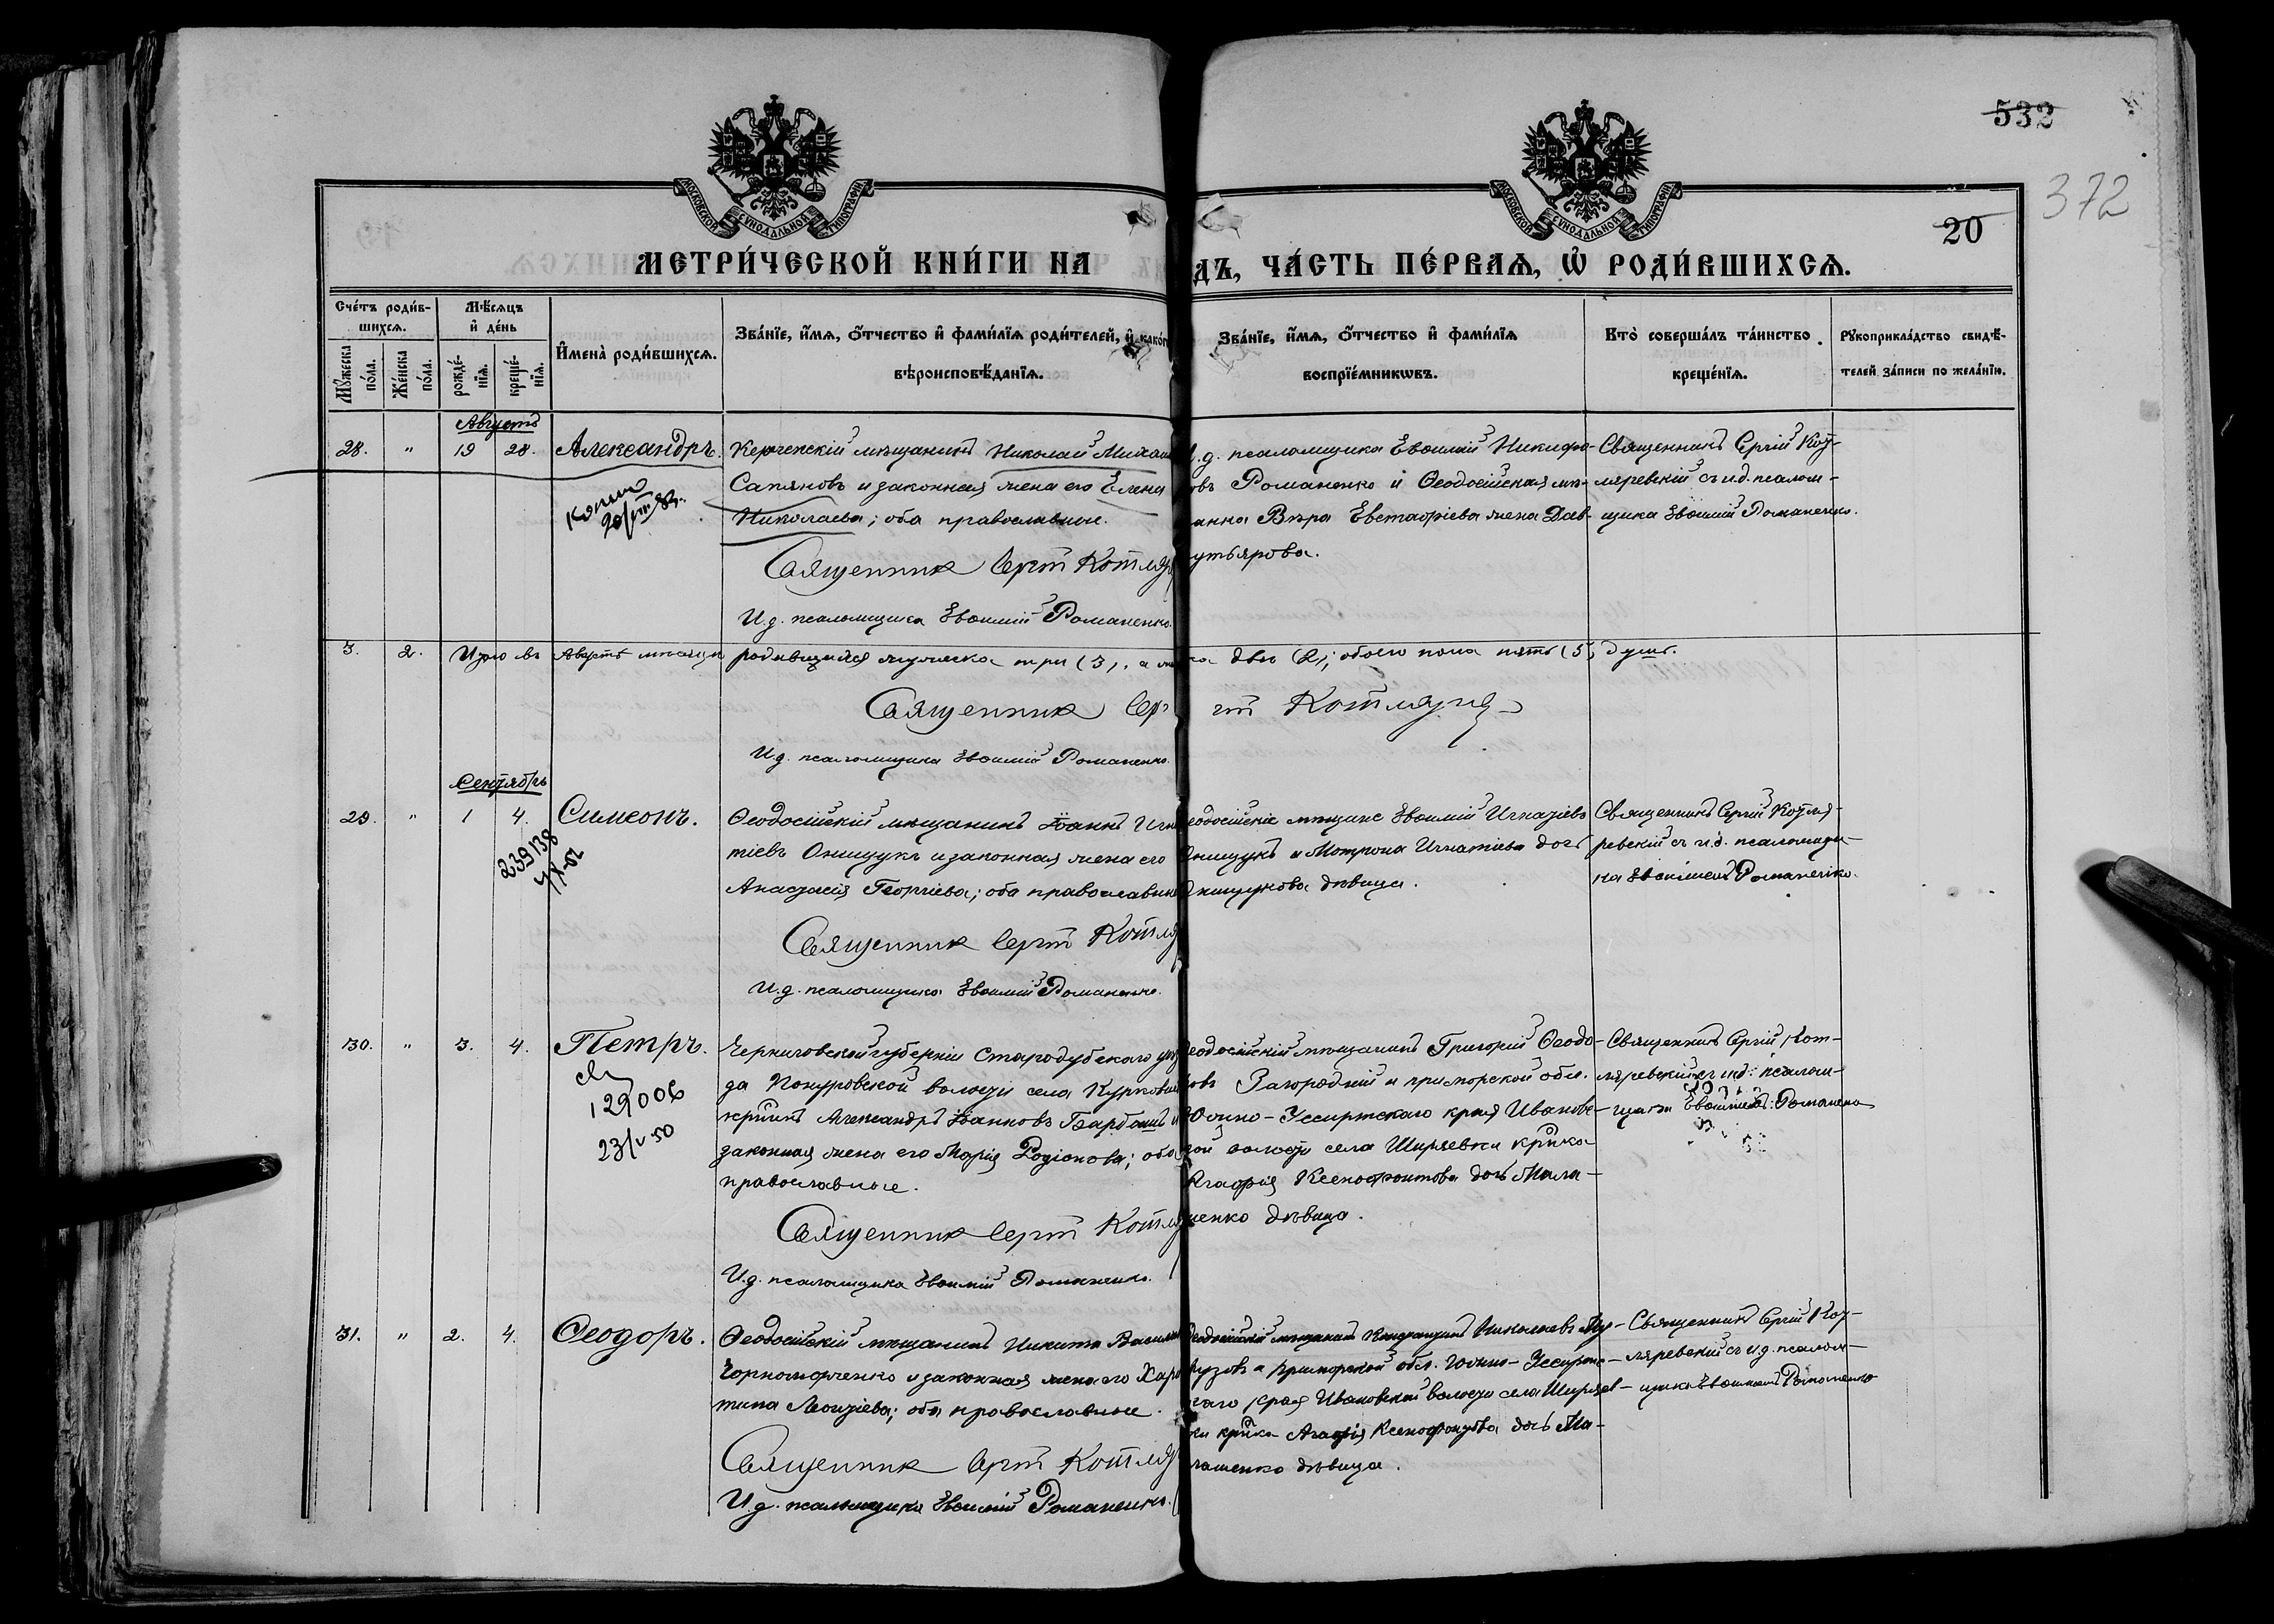 532
372
20
МОСКОВСКОЙ СѴНОДАЛЬНОЙ ТИПОГРАФІИ
МОСКОВСКОЙ СѴНОДАЛЬНОЙ ТИПОГРАФІИ
МЕТРИ́ЧЕСКОЙ КНИ́ГИ НА
ДЪ, ЧА́СТЬ ПЕ́РВАѦ, Ѡ҆ РОДИ́ВШИХСѦ.
Сче́тъ роди́в-
шихсѧ.
Мꙋ́жеска
по́ла.
Же́нска
по́ла.
Мѣ́сѧцъ
и҆ де́нь
рожде́-
нїѧ.
креще́-
нїѧ.
И҆мена̀ роди́вшихсѧ.
Зва́нїе, и҆́мѧ, ѻ҆́тчество и҆ фами́лїѧ роди́телей, и҆ како́г
вѣроисповѣ́данїѧ.
Зва́нїе, и҆́мѧ, ѻ҆́тчество и҆ фами́лїѧ
воспрїе́мникѡвъ.
Кто̀ соверша́лъ та́инство
креще́нїѧ.
Рꙋкоприкла́дство свидѣ́-
телей за́писи по жела́нїю.
Августъ
28. " 19 28. Александръ.
Керченскій мѣщанинъ Николай Михаи
Сапяновъ и законная жена его Елена
Николаева; оба православные.
Священник Сергій Котляр
И.д. псаломщика Евѳимій Романенко.
копия
И.д. псаломщика Евѳимій Никифо-
овъ Романенко и Ѳеодосійская мѣ-
анка Вѣра Евстафіева жена Дав-
утьярова.
Священникъ Сергій Кот-
ляревскій съ и.д. псалом-
щика Евѳимій Романенко.
3. 2. Итого въ Августѣ мѣсяцѣ родившихся мужеска три (3), а же
ка двѣ (2); обоего пола пять (5) душъ.
Священник Сер гій Котляр
И.д. псаломщика Евѳимій Романенко.
Сентябрь
29. " 1 4. Симеонъ.
239138
Ѳеодосійскій мѣщанинъ Іоаннъ Игна
тіевъ Онищукъ и законная жена его
Анастасія Георгіева; оба православные
Священник Сергій Котля
И.д. псаломщика Евѳимій Романенко.
еодосійскіе мѣщане Евѳимій Игнатіевъ
Онищукъ и Мотрона Игнатіева дочь
Онищукова дѣвица.
Священникъ Сергій Котля-
ревскій съ и.д. псаломщи-
ка Евѳиміемъ Романенко.
30. " 3. 4. Петръ.
129006
23/V 50
Черниговской губерніи Стародубскаго уѣз
да Понуровской волости села Куркович
кр-нинъ Александръ Іоанновъ Барбашъ и
законная жена его Марія Родіонова; оба
православные.
Священник Сергій Котля
И.д. псаломщика Евѳимій Романенко.
еодосійскій мѣщанинъ Григорій Ѳеодо-
овъ Загородній и приморской обл.
Южно-Уссурійскаго края Иванов-
кой волости села Ширяевки кр-нка
Агафія Ксенофонтова дочь Мала-
шенко дѣвица.
Священникъ Сергій Кот-
ляревскій съ и.д. псалом-
щика Евѳиміемъ Романенко
31. " 2. 4. Ѳеодоръ.
Ѳеодосійскій мѣщанинъ Никита Василь
Чорноморченко и законная жена его Хари
тина Леонтіева; оба православные.
Священник Сергій Котляр
И.д. псаломщика Евѳимій Романенко.
еодосійскій мѣщанинъ Николаевъ
и приморской обл. Южно-Уссурійс-
каго края Ивановской волости села Ширяев-
ки кр-нка Агафія Ксенофонтова дочь Ма-
лашенко дѣвица.
Священникъ Сергій Кот-
ляревскій съ и.д. псалом-
щика Евѳиміемъ Романенко